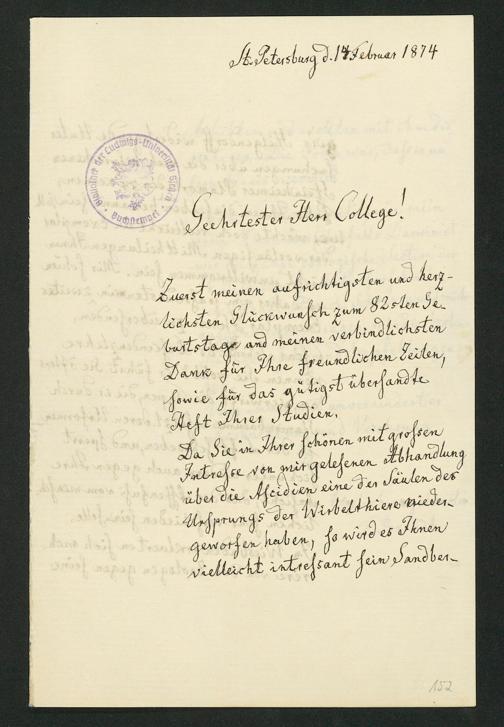 St. Petersburg d. 14 Februar 1874
Bibliothek der Ludwigs-Universität
Geehrtester Herr College!
Zuerst meinen aufrichtigsten und herz-
lichsten Glückwunsch zum 82sten Ge-
burtstage und meinen verbindlichsten
Dank für Ihre freundlichen Zeilen,
sowie für das gütigst übersandte
Heft Ihrer Studien.
Da Sie in Ihrer schönen mit grossen
Intresse von mir gelesenen Abhandlung
über die Ascidien eine der Säulen des
Ursprungs der Wirbelthiere nieder-
geworfen haben, so wird es Ihnen
vielleicht intressant sein Sandber-
152